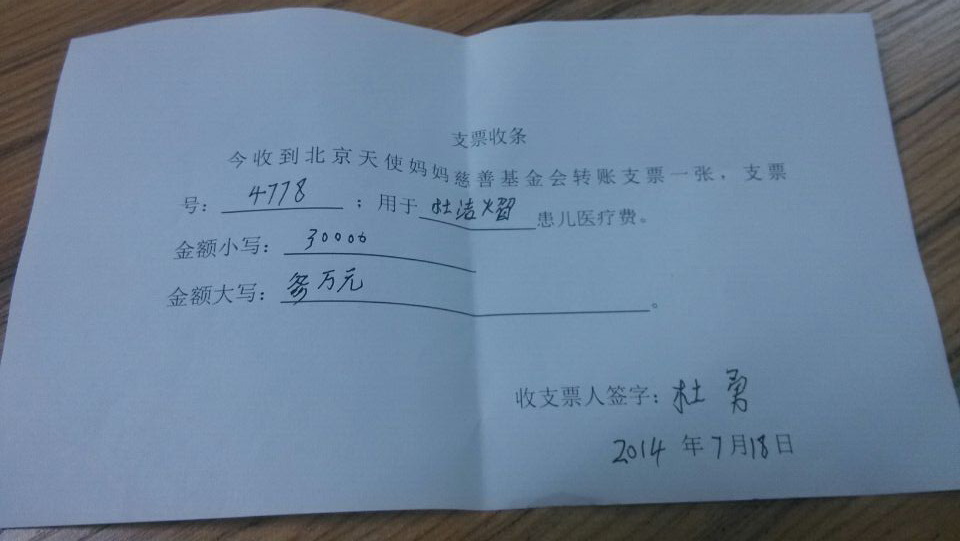 支票收条
今收到北京天使妈妈慈善基金会转账支票一张，支票
号：4778；用于杜洁熠患儿医疗费。
金额小写：30000
金额大写：叁万元。
收支票人签字：杜勇
2014年7月18日